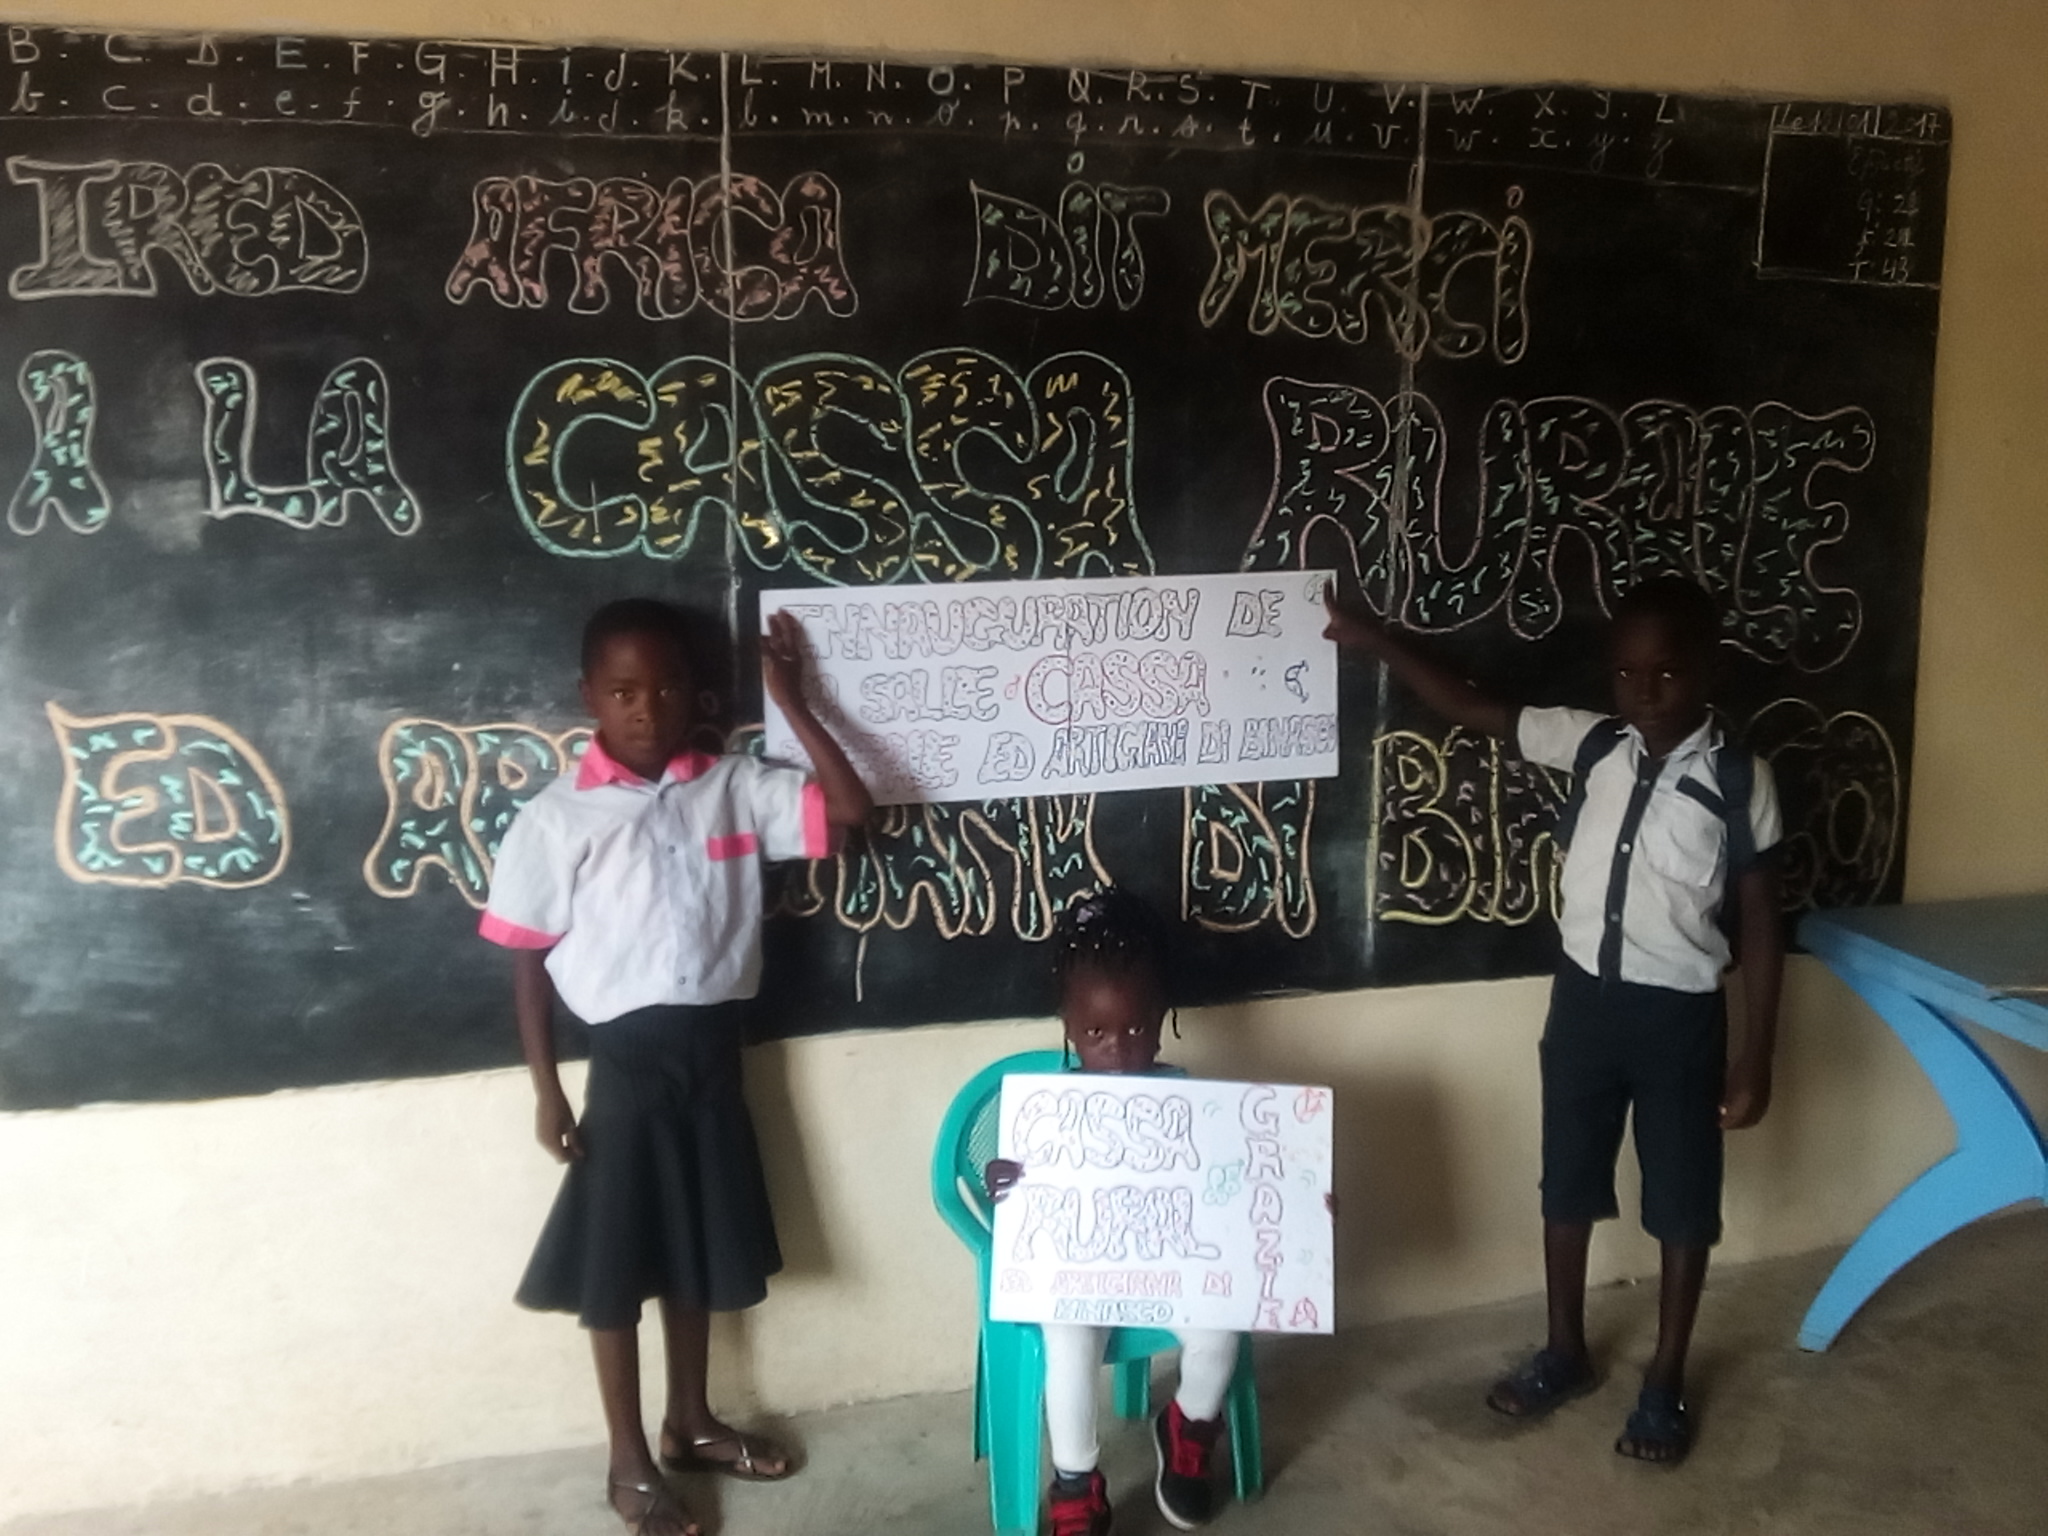 B. C. D. E. F. G. H. i. J. K. L. M. N. O. P Q. R. S. T. U. V. W. X. Y. Z
b. c. d. e. f. g. h. i. j. k. l. m. n. o. p. q. r. s. t. u. v. w. x. y. z
Le 12/01/2017
T: 43
IRED AFRICA DiT MERCi
A LA CASSA RURALE
ED DI
INNAUGURATION DE
SALLE CASSA
ED ARTIGIANA DI BINASCO
CASSA
RURAL
ED ARTIGIANA DI
BINASCO.
GRAZIE